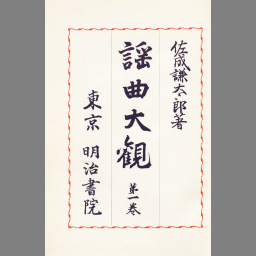 佐成謙太郎著
謡曲大観
第一巻
東京 明治書院